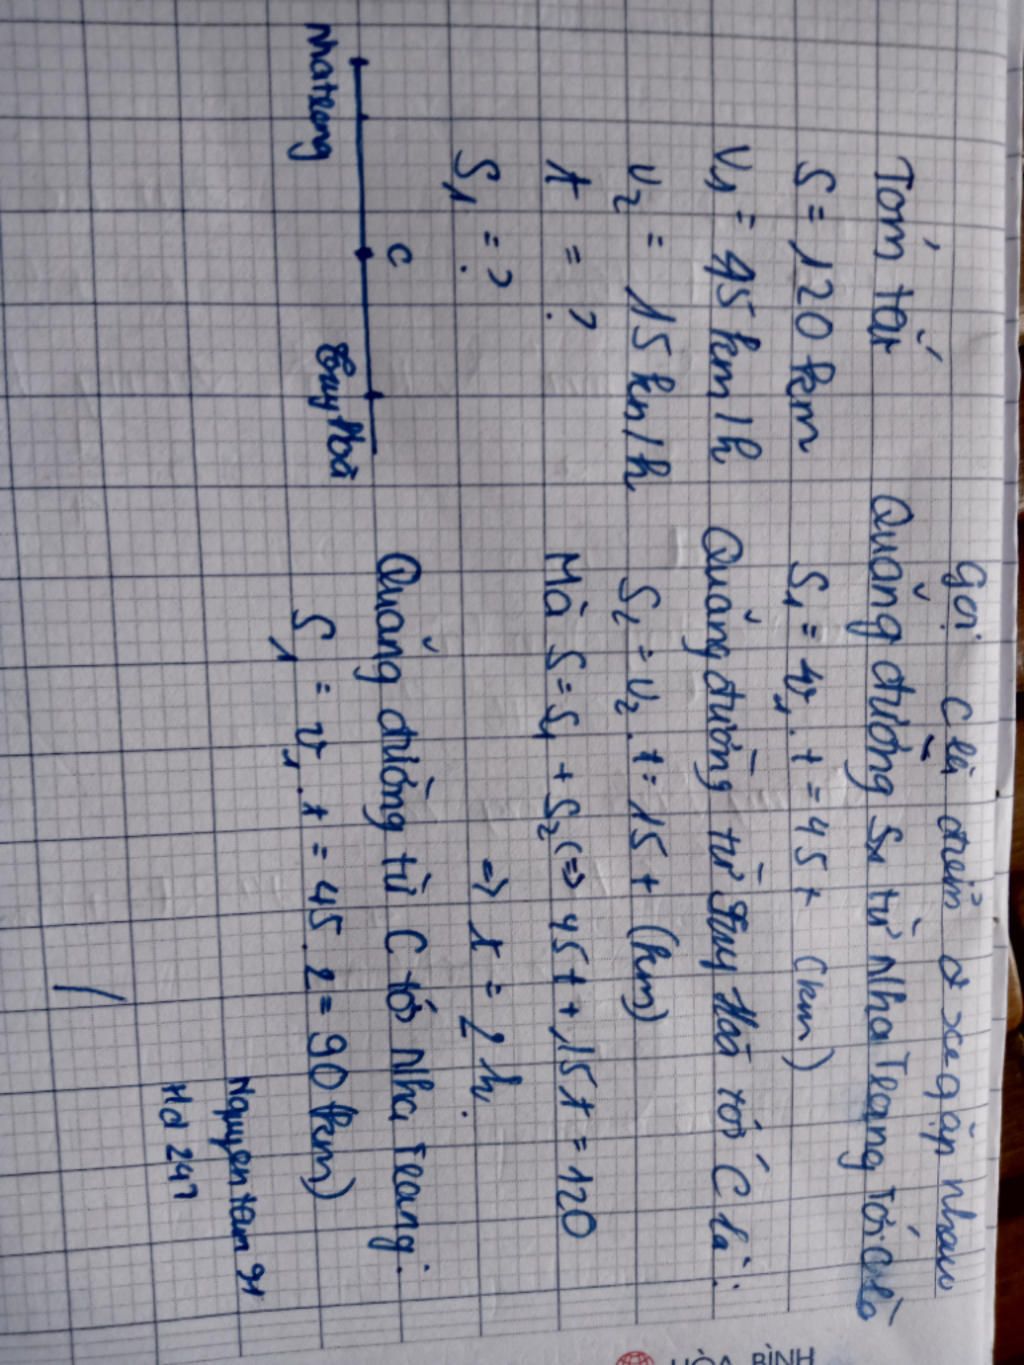 Tóm tắt
S = 120 km
V₁ = 45 km/h
V₂ = 15 km/h
t = ?
S₁ = ?
C
Nha trang Tuy Hoà
Gọi C là điểm 2 xe gặp nhau
Quãng đường S₁ từ Nha Trang tới C là
S₁ = v₁ . t = 45t (km)
Quãng đường từ Tuy Hoà tới C là :
S₂ = V₂ . t = 15t (km)
Mà S = S₁ + S₂ <=> 45t + 15t = 120
=> t = 2h.
Quãng đường từ C tới Nha Trang :
S₁ = v₁ . t = 45 . 2 = 90 km)
Nguyen Nam 91
Hd 247
HÒA BÌNH